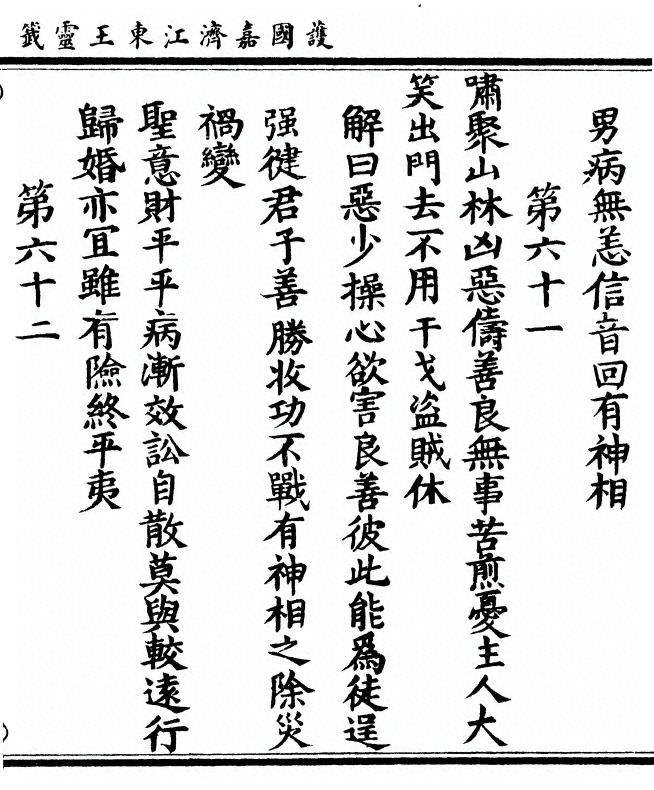 護國嘉濟江東王靈籤
男病無恙信音回有神相
第六十一
嘯聚山林凶惡儔善良無事苦煎憂主人大
笑出門去不用干戈盜賊休
解曰惡少操心欲害良善彼此能爲徒逞
强徤君子善勝收功不戰有神相之除災
禍變
聖意財平平病漸效訟自散莫與較遠行
歸婚亦冝雖有險終平夷
第六十二